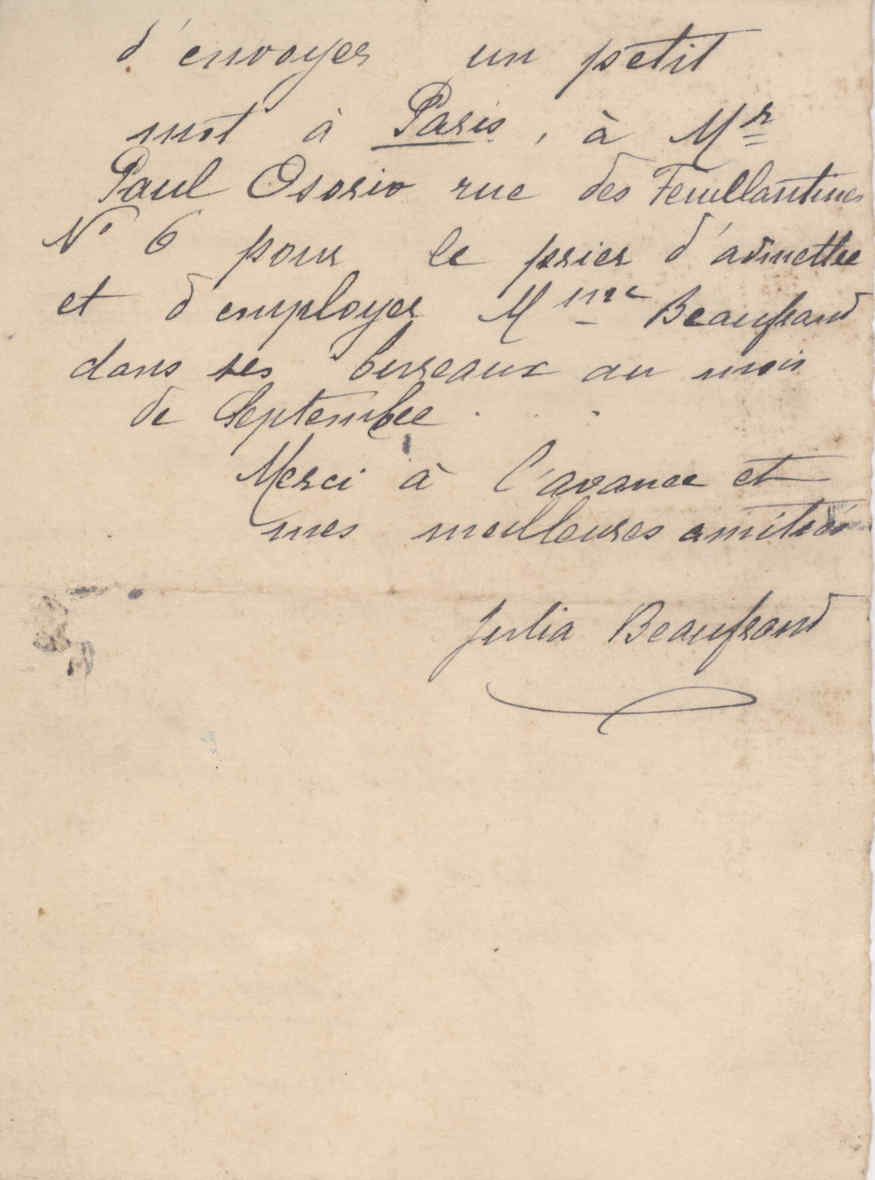 d'envoyer un petit
mot à Paris, à Mr
Paul Osorio rue des Feuillantines
No 6 pour le prier d'admettre
et d'employer Mme Beaufrand
dans ses bureaux au mois
de Septembre.
Merci à l'avance et
mes meilleures amitiés
Julia Beaufrand